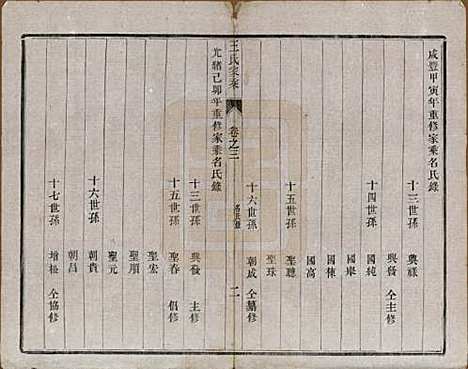 咸豐甲寅年重修家乘名氏錄
十三世孫 興祿
興發 仝主修
十四世孫 國純
國華
國棟
國高
十五世孫 聖聰
聖珠
十六世孫 朝成 仝纂修
王氏家乘 卷之三 名氏錄 二
光緒己卯年重修家乘名氏錄
十三世孫 興發 主修
十五世孫 聖春 倡修
聖宏
聖順
聖元
十六世孫 朝貴
朝昌
十七世孫 增松 仝協修